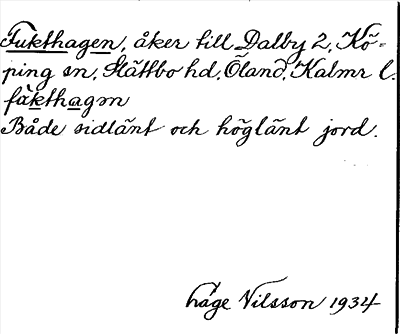 Fukthagen, åker till Dalby 2, Kö-
ping sn, Slättbo hd, Öland, Kalmr l.
fàkthagən
Både sidlänt och höglänt jord.
Åge Nilsson 1934